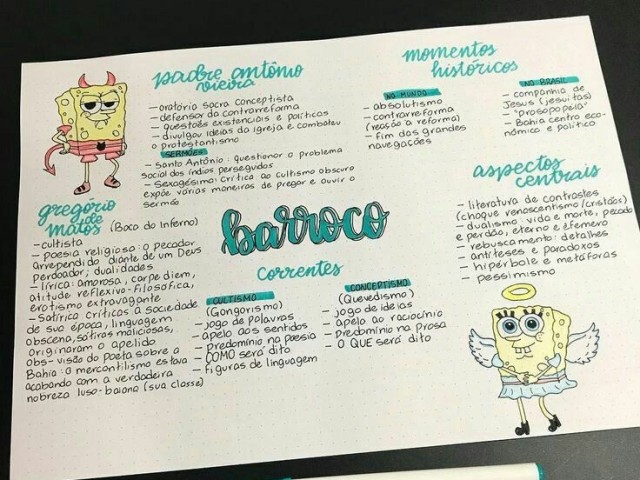 padre antônio
vieira
- oratório sacra conceptista
- defensor da contrarreforma
- questões existenciais e políticas
- divulgou ideias da igreja e combateu
o protestantismo
SERMÕES
- Santo Antônio: questionar o problema
social dos índios perseguidos
- Sexagésimo: crítica ao cultismo obscuro
expõe várias maneiras de pregar e ouvir o
sermão
momentos
históricos
NO MUNDO
- absolutismo
- contrarreforma
(reação à reforma)
- fim das grandes
navegações
NO BRASIL
- companhia de
Jesus (jesuítas)
- "prosopopeia"
- Bahia centro eco-
nômico e político
gregório
de
matos (Boca do Inferno)
- cultista
- poesia religiosa: o pecador
arrependido diante de um Deus
perdoador; dualidades
- lírica: amorosa, carpe diem,
atitude reflexivo-filosófica,
erotismo extravagante
- Satírica: críticas à sociedade
de sua época, linguagem
obscena, sátiras maliciosas,
originaram o apelido
obs- visão do poeta sobre a
Bahia: o mercantilismo estava
acabando com a verdadeira
nobreza luso-baiana (sua classe)
barroco
correntes
CULTISMO
(Gongorismo)
- jogo de palavras
- apelo aos sentidos
- Predomínio na poesia
- COMO será dito
- Figuras de linguagem
CONCEPTISMO
(Quevedismo)
- jogo de ideias
- apelo ao raciocínio
- Predomínio na prosa
- O QUE será dito
aspectos
centrais
- literatura de contrastes
(choque renascentismo/cristãos)
- dualismo: vida e morte, pecado
e perdão, eterno e efêmero
- rebuscamento: detalhes
- antíteses e paradoxos
- hipérbole e metáforas
- pessimismo